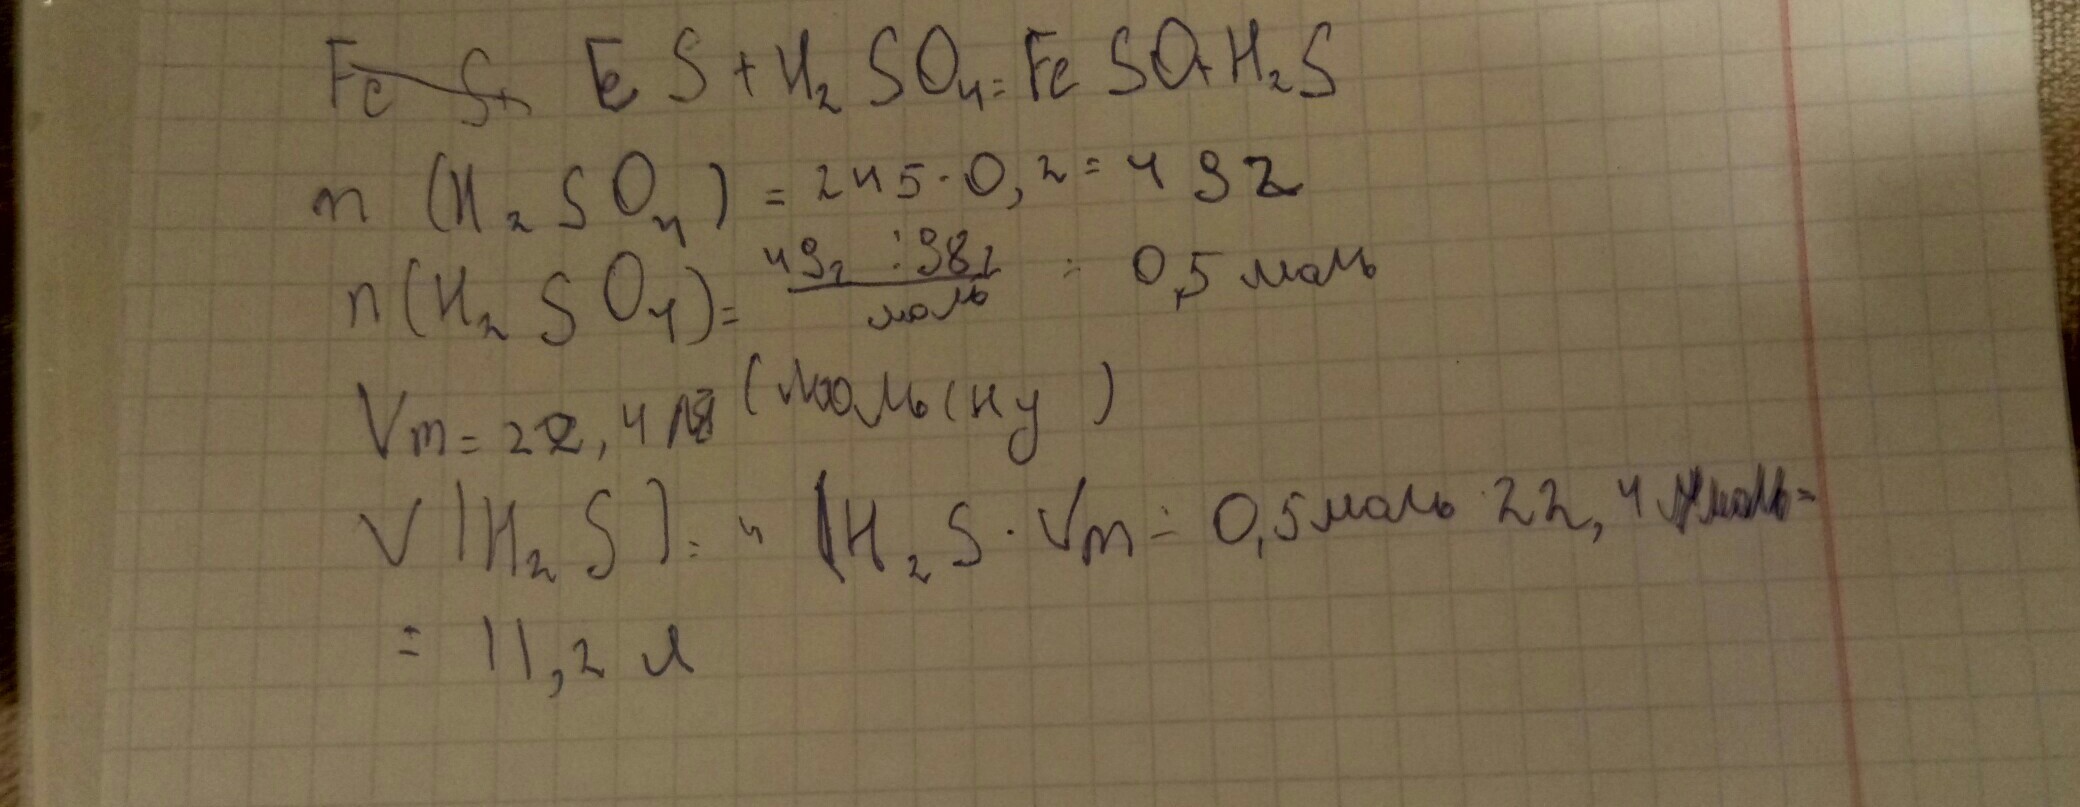 Fe S+ FeS + H₂SO₄ = FeSO + H₂S
m (H₂SO₄) = 245 · 0,2 = 49г
n(H₂SO₄) = 49г : 98г/моль = 0,5 моль
Vm = 22,4 л (моль (ну)
V(H₂S) = n (H₂S · Vm = 0,5 моль · 22,4 л/моль =
= 11,2 л